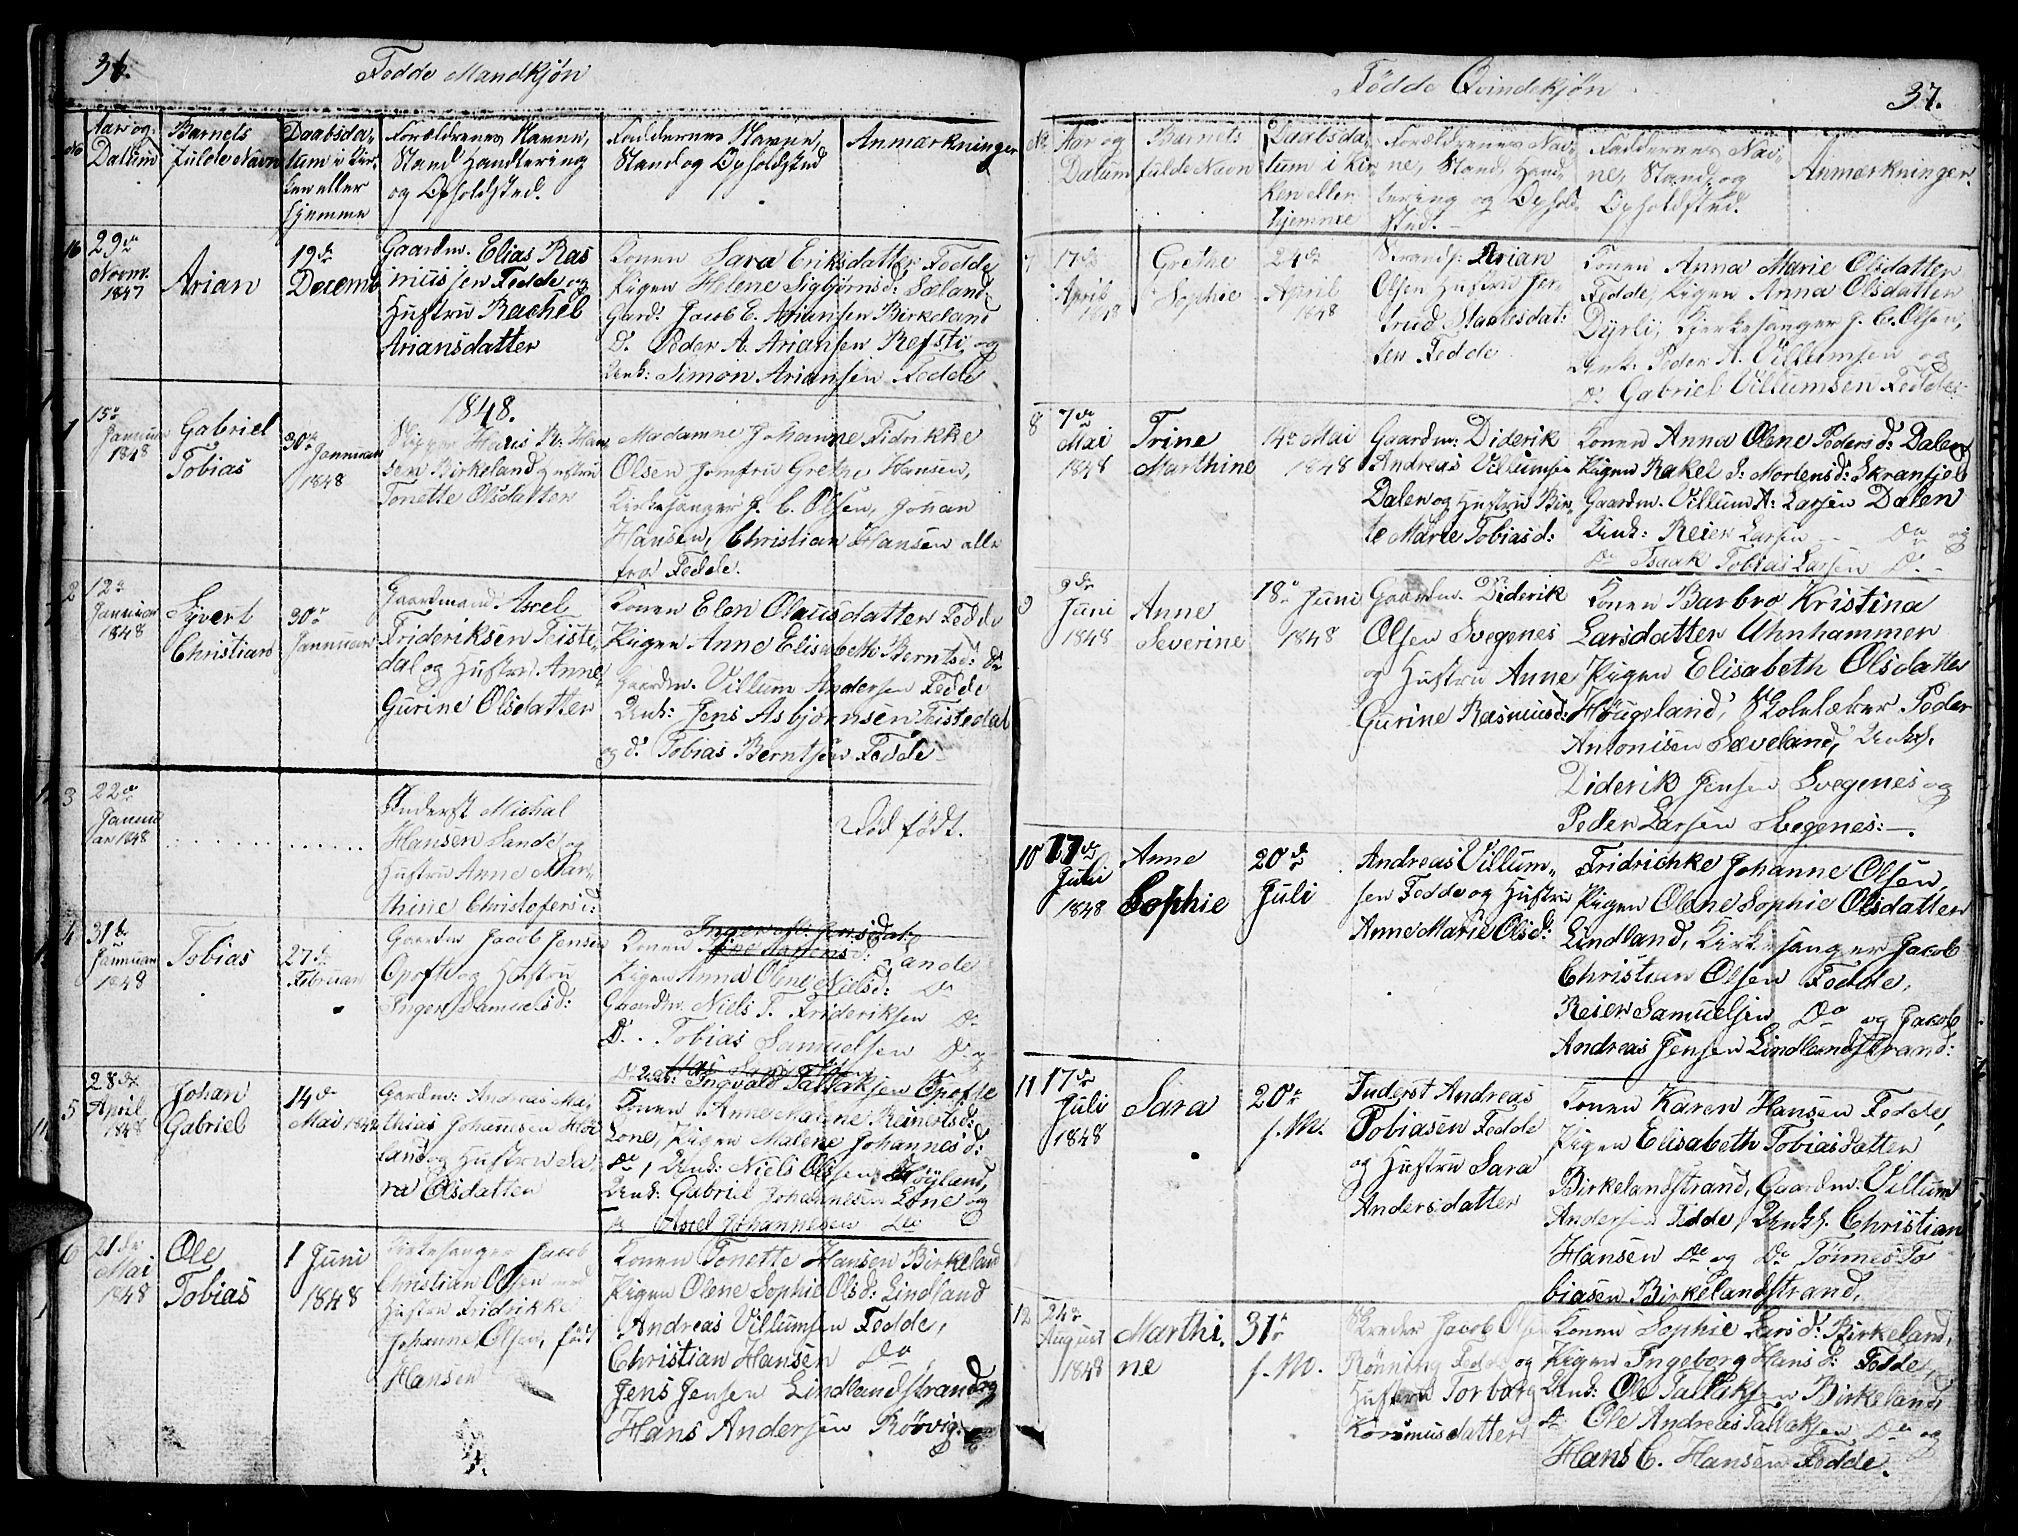 36.
Fødde Mandkjøn
No
Aar og
Datum
Barnets
fulde Navn
Daabsda-
tum i Kir-
ken eller
hjemme
Forældrenes Navne,
Stand Handtering
og Opholdsted.
Faddernes Navne,
Stand og Opholdsted
Anmærkninger
16
29de
Novm.
1847
Arian
19de
Decemb
Gaardm. Elias Ras
mussen Fedde og
Hustru Rachel
Ariansdatter
Konen Sara Eriksdatter Fedde
Pigen Helene Sigbjørnsd: Sæland
Gard: Jacob E. Ariansen Birkeland
Do Peder A. Ariansen Refsti og
Unk: Simon Ariansen Fedde
1848.
1
15de
Januar
1848
Gabriel
Tobias
30te Januar
1848
Skipper Hans R. Han
sen Birkeland og Hustru
Tonette Olsdatter
Madamme Johanne Fidrikke
Olsen Jomfru Grethe Hansen,
Kirkesanger J. C. Olsen, Johan
Hansen, Christian Hansen alle
fra Fedde.
2
12te
Januar
1848
Syvert
Christian
30te
Januar
Gaardmand Axel
Frideriksen Teiste-
dal og Hustru Anne
Gurine Olsdatter
Konen Elen Olausdatter Fedde
Pigen Anne Elisabeth Berntsd: Do
Gaardm. Villum Andersen Fedde
Unk: Jens Asbjørnsen Teistedal
og Do Tobias Berntsen Fedde
3
22de
Janu
ar 1848
Inderst Michal
Hansen Sande og
Hustru Anne Mar-
thine Christofersd:
Død født.
4
31te
Januar
1848
Tobias
27de
Februar
Gaardm Jacob Jensen
Opofte og Hustru
Inger Samuelsd:
Konen Sande
Pigen Anna Olene Nielsd: Do
Gaardm. Niels T. Frideriksen Do
Do.. Tobias Samuelsen Do og
Do Unk: Ingvald Tallaksen Opofte
5
28de
April
1848
Johan
Gabriel
14de
Mai 1848
Gardm: Andreas Ma-
thias Johannesen Høi
land og Hustru Sa-
ra Olsdatter
Konen Anne Malene Reinotsd:
Lone, Pigen Malene Johannesd:
Do, Unk: Niels Olsen Høyland,
Unk: Gabriel Johannesen Lone og
Do Axel Johannesen Do
6
21de
Mai
1848
Ole
Tobias
1 Juni
1848
Kirkesanger Jacob
Christian Olsen med
Hustru Fridrikke
Johanne Olsen, fød
Hansen
Konen Tonette Hansen Birkeland
Pigen Olene Sophie Olsd: Lindland
Andreas Villumsen Fedde,
Christian Hansen Do,
Jens Jensen Lindlandstrand og
Hans Andersen Røsvig.
37.
Fødde Qvindekjøn
No
Aar og
Datum
Barnets
fulde Navn
Daabsda-
tum i Kir
ken eller
hjemme
Forældrenes Nav-
ne, Stand, Hand-
tering og Ophold-
sted.
Faddernes Nav-
ne, Stand og
Opholdsted.
Anmærkninger.
7
17de
April
1848
Grethe
Sophie
24de
April
1848
Strands: Arian
Olsen Hustru Jer-
trud Staalesdat-
ter Fedde
Konen Anna Marie Olsdatter
Fedde, Pigen Anna Olsdatter
Dyrli, Kirkesanger J. C. Olsen,
Unk: Peder A. Villumsen og
Do Gabriel Villumsen Fedde.
8
7de
Mai
1848
Trine
Marthine
14de Mai
1848
Gaardm: Diderik
Andreas Villumsen
Dalen og Hustru Bir-
te Marie Tobiasd:
Konen Anna Olene Pedersd: Dalen
Pigen Rakel S. Mortensd: Skranfjel
Gaardm. Villum A: Larsen Dalen
Unk: Reier Larsen Do og
Do Isaak Tobias Larsen Do
9
3de
Juni
1848
Anne
Severine
18de Juni
1848
Gaardm. Diderik
Olsen Svegenes
og Hustru Anne
Gurine Rasmusd:
Konen Barbro Kristina
Larsdatter Uhnhammer
Pigen Elisabeth Olsdatter
Høugeland, Skolelærer Peder
Antonisen Sæveland, Unk.
Diderik Jensen Svegenes og
Peder Larsen Svegenes.
10
17de
Juli
1848
Anne
Sophie
20de
Juli
Andreas Villum-
sen Fedde og Hustru
Anne Marie Olsd:
Fridrichke Johanne Olsen,
Pigen Olene Sophie Olsdatter
Lindland, Kirkesanger Jacob
Christian Olsen Fedde,
Reier Samuelsen Do og Jakob
Andreas Jensen Lindlandstrand:
11
17de
Juli
1848
Sara
20de
f. M.
Inderst Andreas
Tobiasen Fedde
og Hustru Sara
Andersdatter
Konen Karen Hansen Fedde,
Pigen Elisabeth Tobiasdatter
Birkelandstrand, Gaardm: Villum
Andersen Fedde, Unk. Christian
Hansen Do og Do Tønnes To
biasen Birkelandstrand,
12
24de
August
1848
Marthi.
ne
31te
f. M.
Skreder Jacob Olsen
Rønning Fedde og
Hustru Torborg
Rasmusdatter
Konen Sophie Larsd: Birkeland,
Pigen Ingeborg Hansd: Fedde,
Unk: Ole Tallaksen Birkeland
Do Ole Andreas Tallaksen Do og
Hans C. Hansen Fedde.